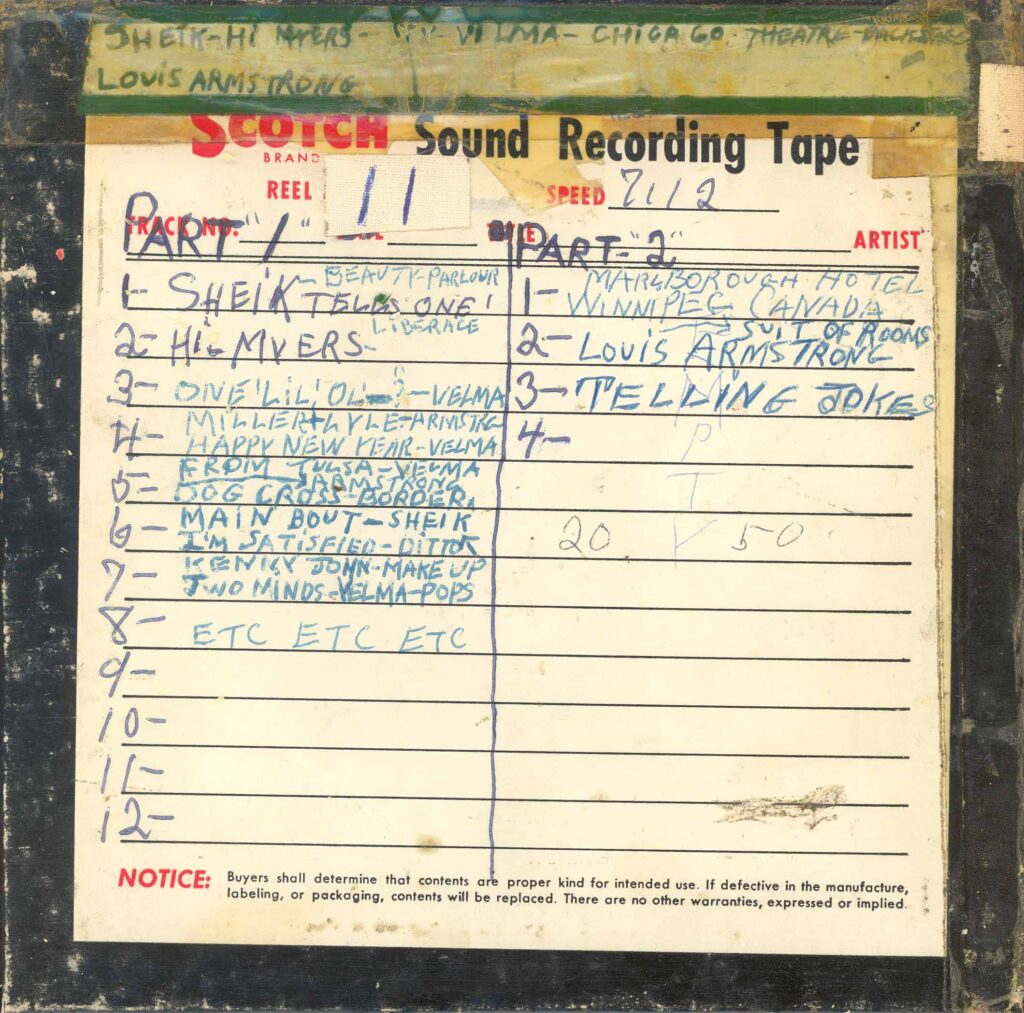 SHEIK-HI MYERS- VELMA- CHICAGO THEATRE-BACKSTAGE
LOUIS ARMSTRONG
SCOTCH Sound Recording Tape
BRAND
REEL 11 SPEED 7 1/2
TRACK NO. ARTIST
PART "1" PART-"2"
1- SHEIK - BEAUTY-PARLOUR
TELLS ONE'
LIBERACE
2- HI- MYERS-
3- ONE 'LIL' OL'-?-VELMA
4- MILLER+LYLE-ARMSTRG
HAPPY NEW YEAR-VELMA
FROM TULSA-VELMA
5- ARMSTRONG
DOG CROSS-BORDER,
6- MAIN BOUT-SHEIK
I'M SATISFIED-DITTO
7- KENNY JOHN-MAKE UP
TWO MINDS-VELMA-POPS
8- ETC ETC ETC
9-
10-
11-
12-
1- MARLBOROUGH HOTEL
WINNIPEG CANADA
SUIT OF ROOMS
2- LOUIS ARMSTRONG
3- TELLING JOKES
4-
M
P
T
Y
20 50
NOTICE: Buyers shall determine that contents are proper kind for intended use. If defective in the manufacture,
labeling, or packaging, contents will be replaced. There are no other warranties, expressed or implied.